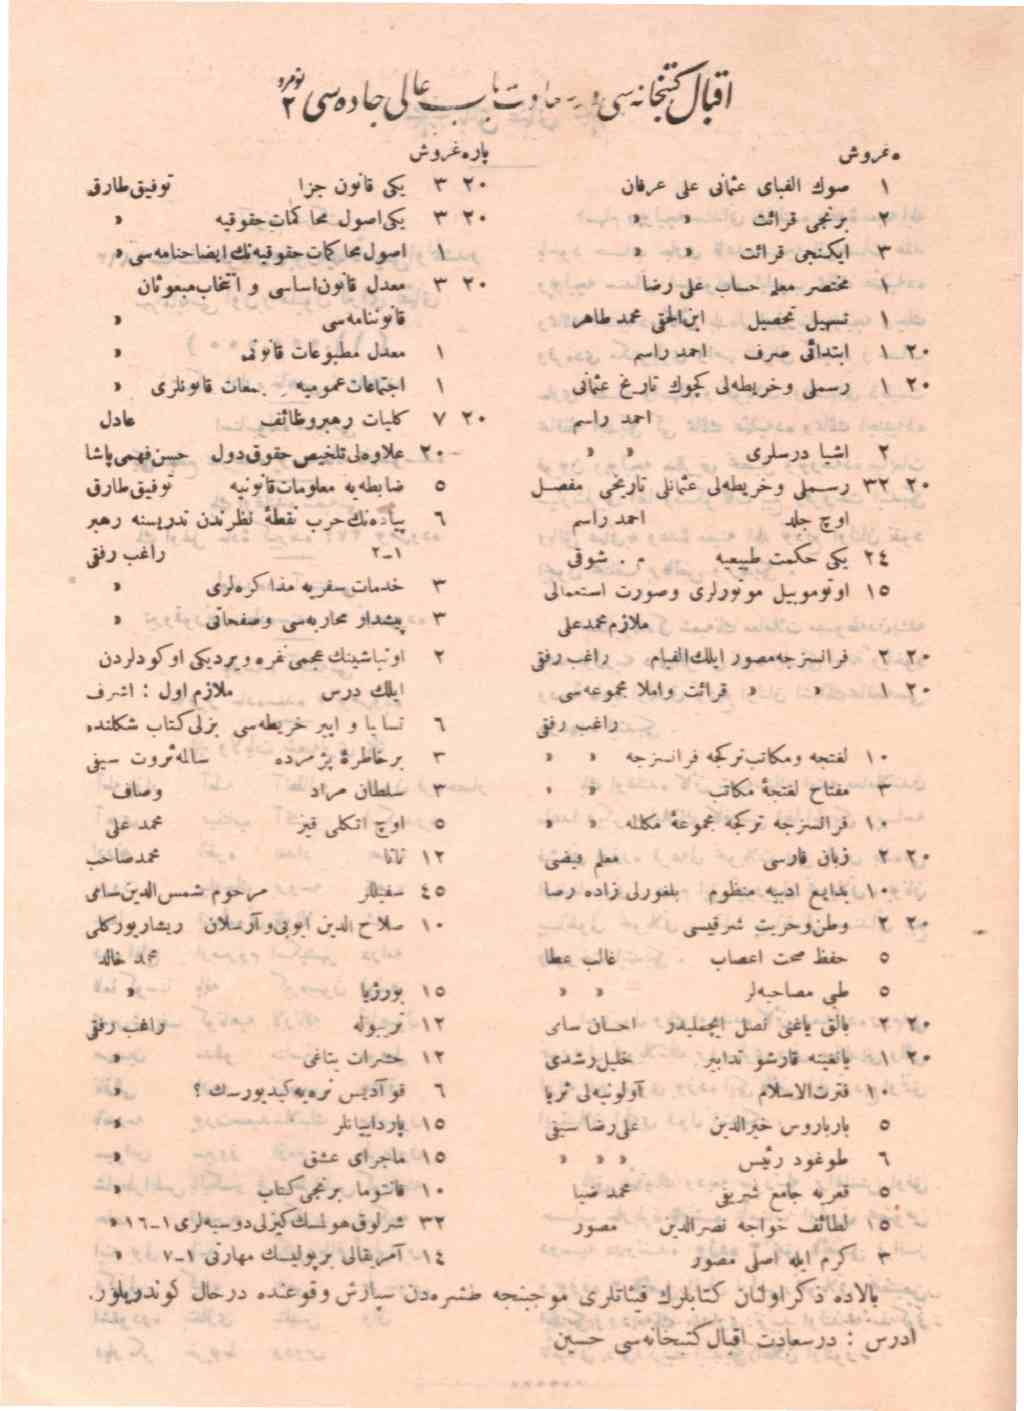 اقبال كتبخانه‌سی درسعادت باب عالی جاده‌سی نومرو ٢
غروش
١ صوك الفبای عثمانی علی عرفان
٢ برنجی قرائت » »
٣ ایكنجی قرائت » »
١ مختصر معلم حساب علی رضا
١ تسهیل تحصیل ابن‌الحقی محمد طاهر
٢٠ ١ ابتدائی صرف احمد راسم
٢٠ ١ رسملی وخریطه‌لی كچوك تاریخ عثمانی
احمد راسم
٢ اشیا درسلری » »
٢٠ ٣٢ رسملی وخریطه‌لی عثمانلی تاریخی مفصل
اوچ جلد احمد راسم
٢٤ یكی حكمت طبیعیه م . شوقی
١٥ اوتوموبیل موتورلری وصورت استعمالی
ملازم محمدعلی
٢٠ ٢ فرانسزجه مصور ایلك الفبام راغب رفقی
٢٠ ١ » » قرائت واملا مجموعه‌سی
راغب رفقی
١٠ لغتجه ومكاتب تركجه فرانسزجه » »
٣ مفتاح لغتجهٔ مكاتب » »
١٠ فرانسزجه تركجه مجموعهٔ مكالمه » »
٢٠ ٢ زبان فارسی معلم فیضی
١٠ بدایع ادبیه منظوم بلغورلی زاده رضا
٢٠ ٢ وطن وحریت شرقیسی
٥ حفظ صحت اعصاب غالب عطا
٥ طبی مصاحبه‌لر » »
٢٠ ٢ بالق یاغنی نصل ایچملیدر احسان سای
٢٠ ١ یانغینه قارشو تدابیر خلیل رشدی
١٠ فترت‌الاسلام آولونیه‌لی ثریا
٥ بارباروس خیرالدین علی رضا سیفی
٦ طوغود رئیس » » »
٥ قعریه جامع شریفی محمد ضیا
١٥ لطائف خواجه نصرالدین مصور
٣ كرم ایله اصلی مصور
پاره غروش
٢٠ ٣ یكی قانون جزا توفیق طارق
٢٠ ٣ یكی اصول محاكمات حقوقیه »
١ اصول محاكمات حقوقیه‌نك ایضاحنامه‌سی »
٢٠ ٣ معدل قانون اساسی و انتخاب مبعوثان
قانوننامه‌سی »
١ معدل مطبوعات قانونی »
١ اجتماعات عمومیه جمعات قانونلری »
٢٠ ٧ كلیات رهبر وظائف عادل
٢٠ علاوه‌لی تلخیص حقوق دول حسن فهمی پاشا
٥ ضابطه‌یه معلومات قانونیه توفیق طارق
٦ پیاده‌نك حرب نقطهٔ نظرندن تدریسنه رهبر
١-٢ راغب رفقی
٣ خدمات سفریه مذاكره‌لری »
٣ پیشدار محاربه‌سی وصفحاتی »
٢ اونباشینك عجمی نفره ویردیكی اوكودلردن
ایلك درس ملازم اول : اشرف
٦ تسالیا و ایپر خریطه‌سی بزلی كتاب شكلنده
٣ برخاطرهٔ پژمرده سالمه ثروت سیفی
٣ سلطان مراد وصاف
٥ اوچ اتكلی قیز محمد علی
١٢ نانا محمد صاحب
٤٥ سفیللر مرحوم شمس‌الدین سامی
١٠ صلاح الدین ایوبی و آرسلان ریشار یوركلی
محمد خالد
١٥ بورژیا »
١٢ تریوله راغب رفقی
١٢ حشرات یتاغی »
٦ قو آدیس نره‌یه كیدیورسك ؟ »
١٥ پاردایانلر »
١٥ ماجرای عشق »
١٠ فانتوما برنجی كتاب »
٣٢ شرلوق هولمسك كیزلی دوسیه‌لری ١-١٦ »
١٤ آمریقالی بر پولیسك مهارتی ١-٧ »
بالاده ذكر اولنان كتابلرك فیئاتلری موجبنجه طشره‌دن سپارش وقوعنده درحال كوندریلور.
ادرس : درسعادت اقبال كتبخانه‌سی حسین